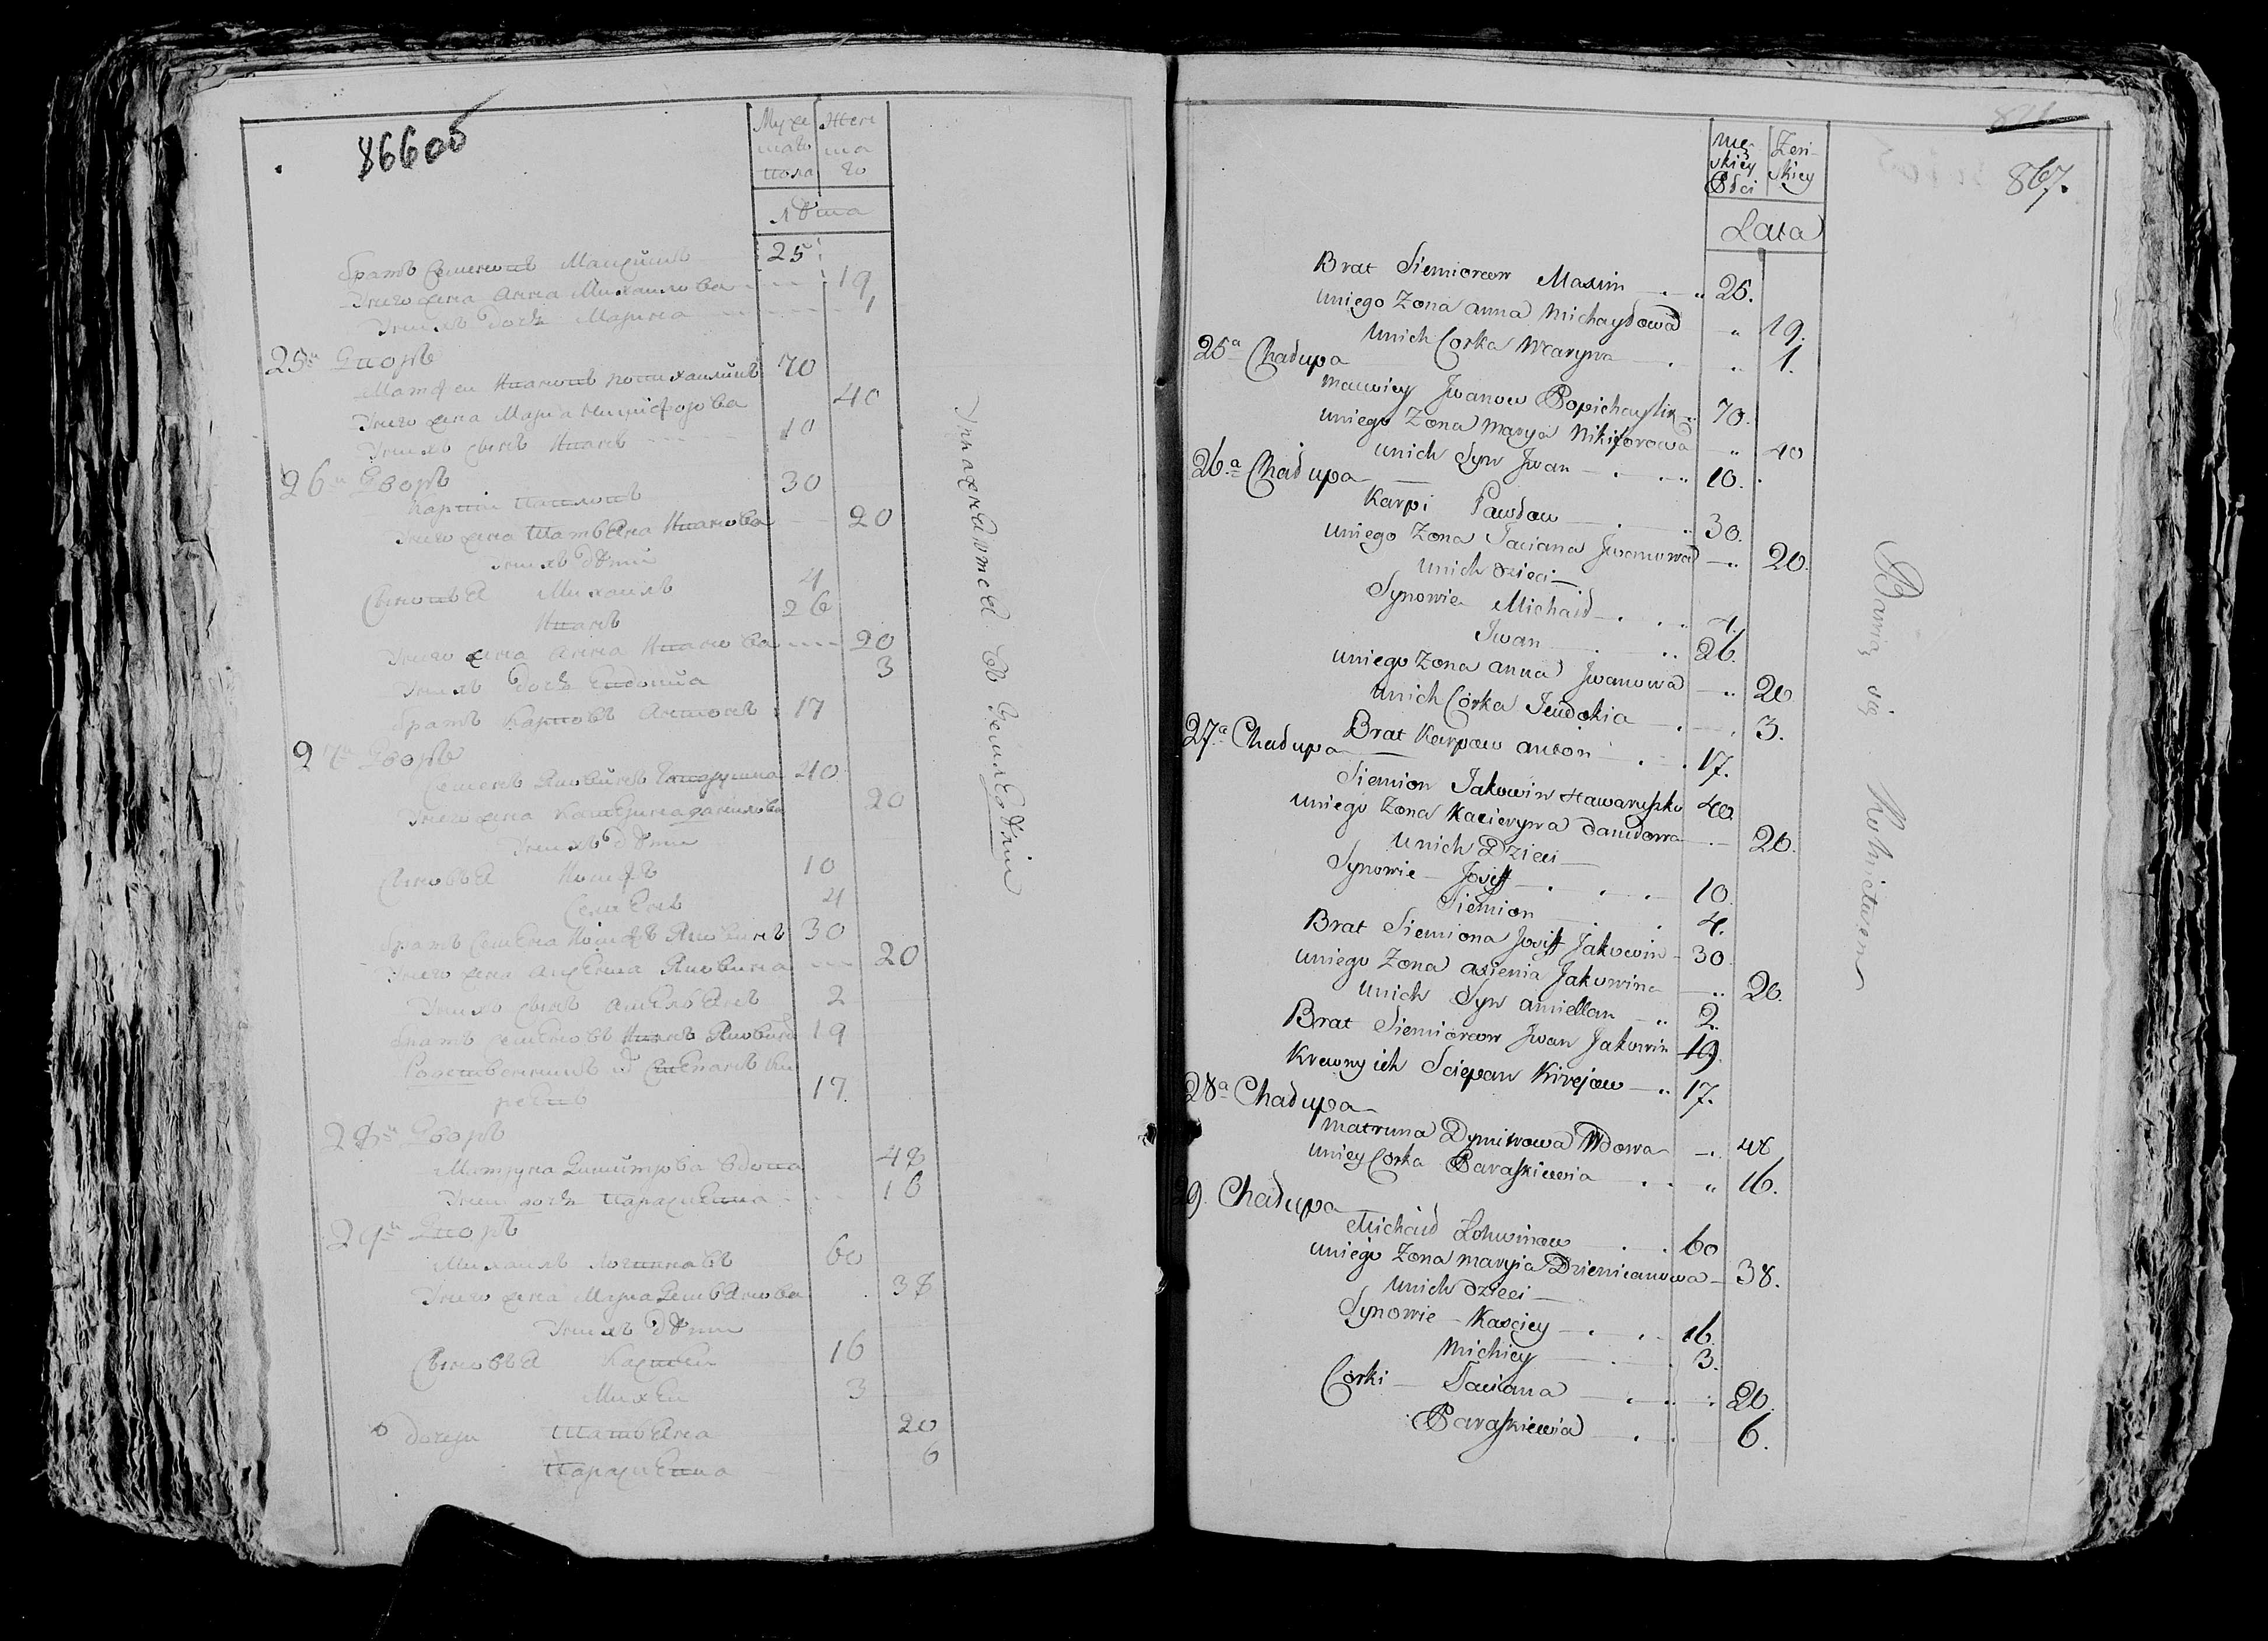 866об
Муже
ска
пола
Женс
ка
го
лѣта
Братъ Семеновъ Максимъ 25
Унего жена Анна Михайлова 19
Унихъ дочь Марина 1
25й Дворъ
Матфей Ивановъ 70
Унего жена Марья Никифорова 40
Унихъ сынъ Иванъ 10
26й Дворъ
Карпѣй Павловъ 30
Унего жена Татьяна Иванова 20
Унихъ дѣти
Сыновья Михаилъ 4
Иванъ 26
Унего жена Анна Иванова 20
Унихъ дочь Евдокия 3
Братъ Карповъ Антонъ 17
27й Дворъ
Семенъ Яковинъ 40
Унего жена Катерина Данилова 20
Унихъ дѣти
Сыновья Иосифъ 10
Семенъ 4
Братъ Семена Иосифъ Яковинъ 30
Унего жена Аксенья Яковина 20
Унихъ сынъ Амельянъ 2
Братъ Семеновъ Иванъ Яковинъ 19
Родственникъ Степанъ Ки
реевъ 17
28й Дворъ
Матруна Димитрова вдова 48
Унеи дочь Парасковия 16
29й Дворъ
Михаилъ Логиновъ 60
Унего жена Марья Демьянова 38
Унихъ дѣти
Сыновья Касьтѣй 16
Михѣй 3
Дочери Татьяна 20
Парасковия 6
Упражняются въ Земледѣлии
867.
Mę-
skiey
Płci
Żeń-
skiey
Lata
Brat Siemionow Maxim 25.
Uniego Zona Anna Michayłowa 19.
Unich Corka Maryna 1.
25a Chałupa
Macwiey Jwanow Popichaylik 70.
Uniego Zona Marya Nikiforowa 40
Unich Syn Jwan 10.
26a Chałupa
Karpi Pawłow 30.
Uniego Zona Taciana Jwanowa 20.
Unich dzieci
Synowie Michaił 4.
Jwan 26.
Uniego Zona Anna Jwanowa 20
Unich Corka Jeudokia 3.
Brat Karpow Anton 17.
27a Chałupa
Siemion Jakowin Hawaruszko 40.
Uniego Zona Kacieryna Daniłowa 20.
Unich Dzieci
Synowie Josiff 10.
Siemion 4.
Brat Siemiona Josiff Jakowin 30
Uniego Zona Axienia Jakowina 20.
Unich Syn Amiellan 2.
Brat Siemionow Jwan Jakowin 19.
Krewny ich Sciepan Kirejew 17.
28a Chałupa
Matruna Dymitrowa Wdowa 48
Uniey Corka Paraskiewia 16.
29. Chałupa
Michaił Łohwinow 60
Uniego Zona Maryia Dziemianowa 38.
Unich dzieci
Synowie Kasciey 16.
Michiey 3.
Corki Taciana 20.
Paraskiewia 6.
Bawią się Rolnictwem